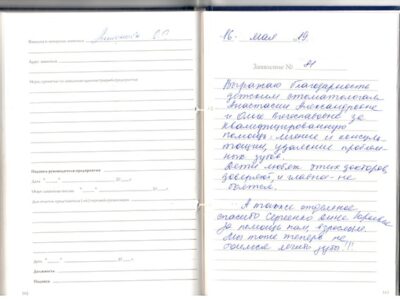 Фамилия и инициалы заявителя
Адрес заявителя
Меры, принятые по заявлению администрацией предприятия
Подпись руководителя предприятия
Дата " " 20 г.
Дата " " 20 г.
Должность
Подпись
16 мая 19
Заявление №
Выражаю благодарность
детским стоматологам
Анастасии Александровне
и Ольге Вячеславовне за
квалифицированную
помощь: лечение и консуль-
тации, удаление проблем-
ных зубов.
Дети любят этих докторов,
доверяют, и главное - не
боятся.
А также отдельное
спасибо Сергиенко Юрьевне
за помощь нам, взрослым.
Мы тоже теперь не
боимся лечить зубы!!!